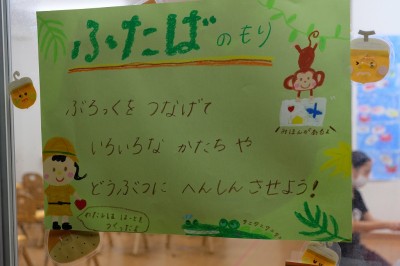 ふたばのもり
ぶろっくを つなげて
いろいろな かたちや
どうぶつに へんしん させよう!
みほんがあるよ